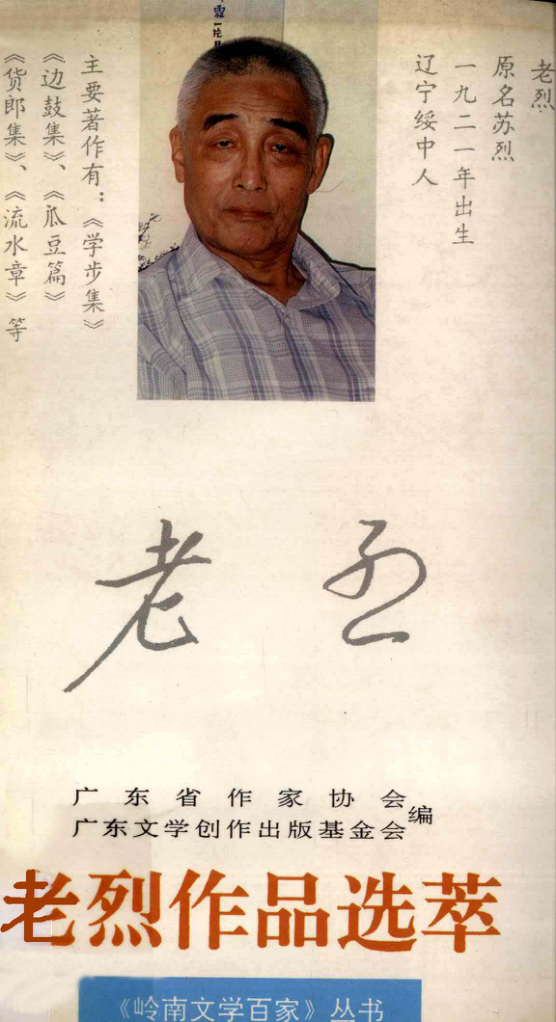 老烈
原名苏烈
一九二一年出生
辽宁绥中人
主要著作有：《学步集》
《边鼓集》、《瓜豆篇》
《货郎集》、《流水章》等
老烈
广东省作家协会
广东文学创作出版基金会编
老烈作品选萃
《岭南文学百家》丛书